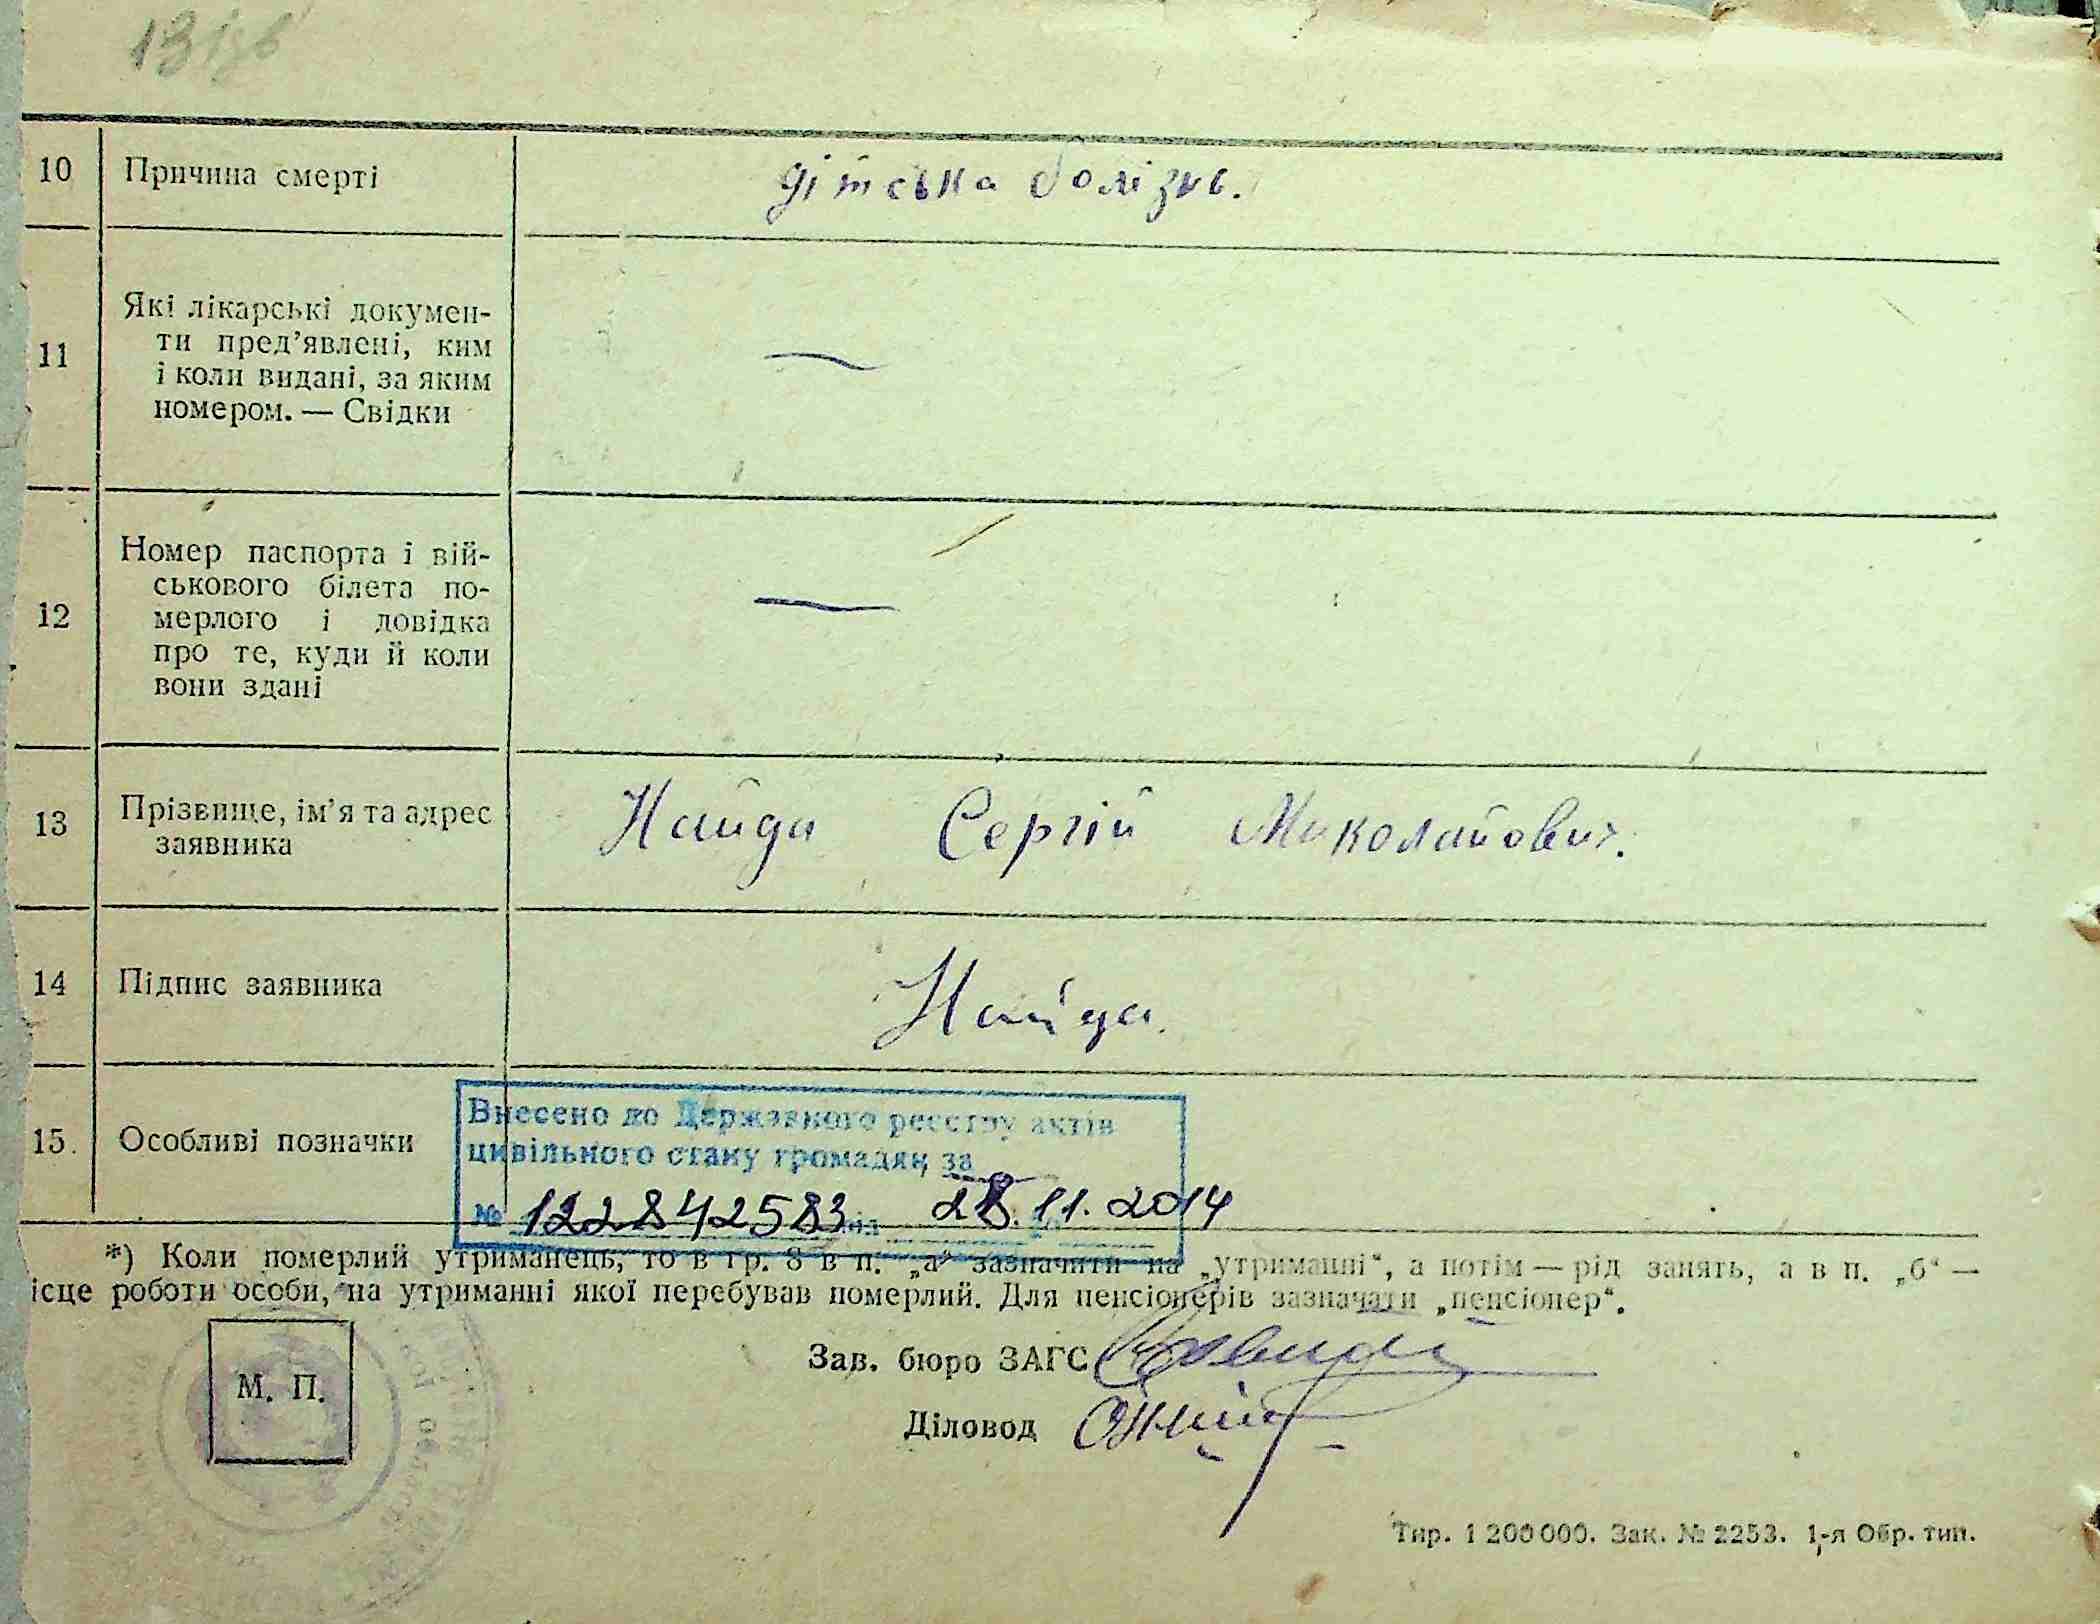 10 Причина смерті дітська болізнь.
11 Які лікарські докумен-
ти пред’явлені, ким
і коли видані, за яким
номером. — Свідки —
12 Номер паспорта і вій-
ськового білета по-
мерлого і довідка
про те, куди й коли
вони здані —
13 Прізвище, ім’я та адрес
заявника Найда Сергій Миколайович.
14 Підпис заявника Найда.
15. Особливі позначки
Внесено до Державного реєстру актів
цивільного стану громадян за
№ 122842583 від 28.11.2014
*) Коли померлий утриманець, то в гр. 8 в п. „а“ зазначити на „утриманні“, а потім — рід занять, а в п. „б“ —
ісце роботи особи, на утриманні якої перебував померлий. Для пенсіонерів зазначати „пенсіонер“.
М. П.
Зав. бюро ЗАГС
Діловод
Тир. 1 200 000. Зак. № 2253. 1-я Обр. тип.